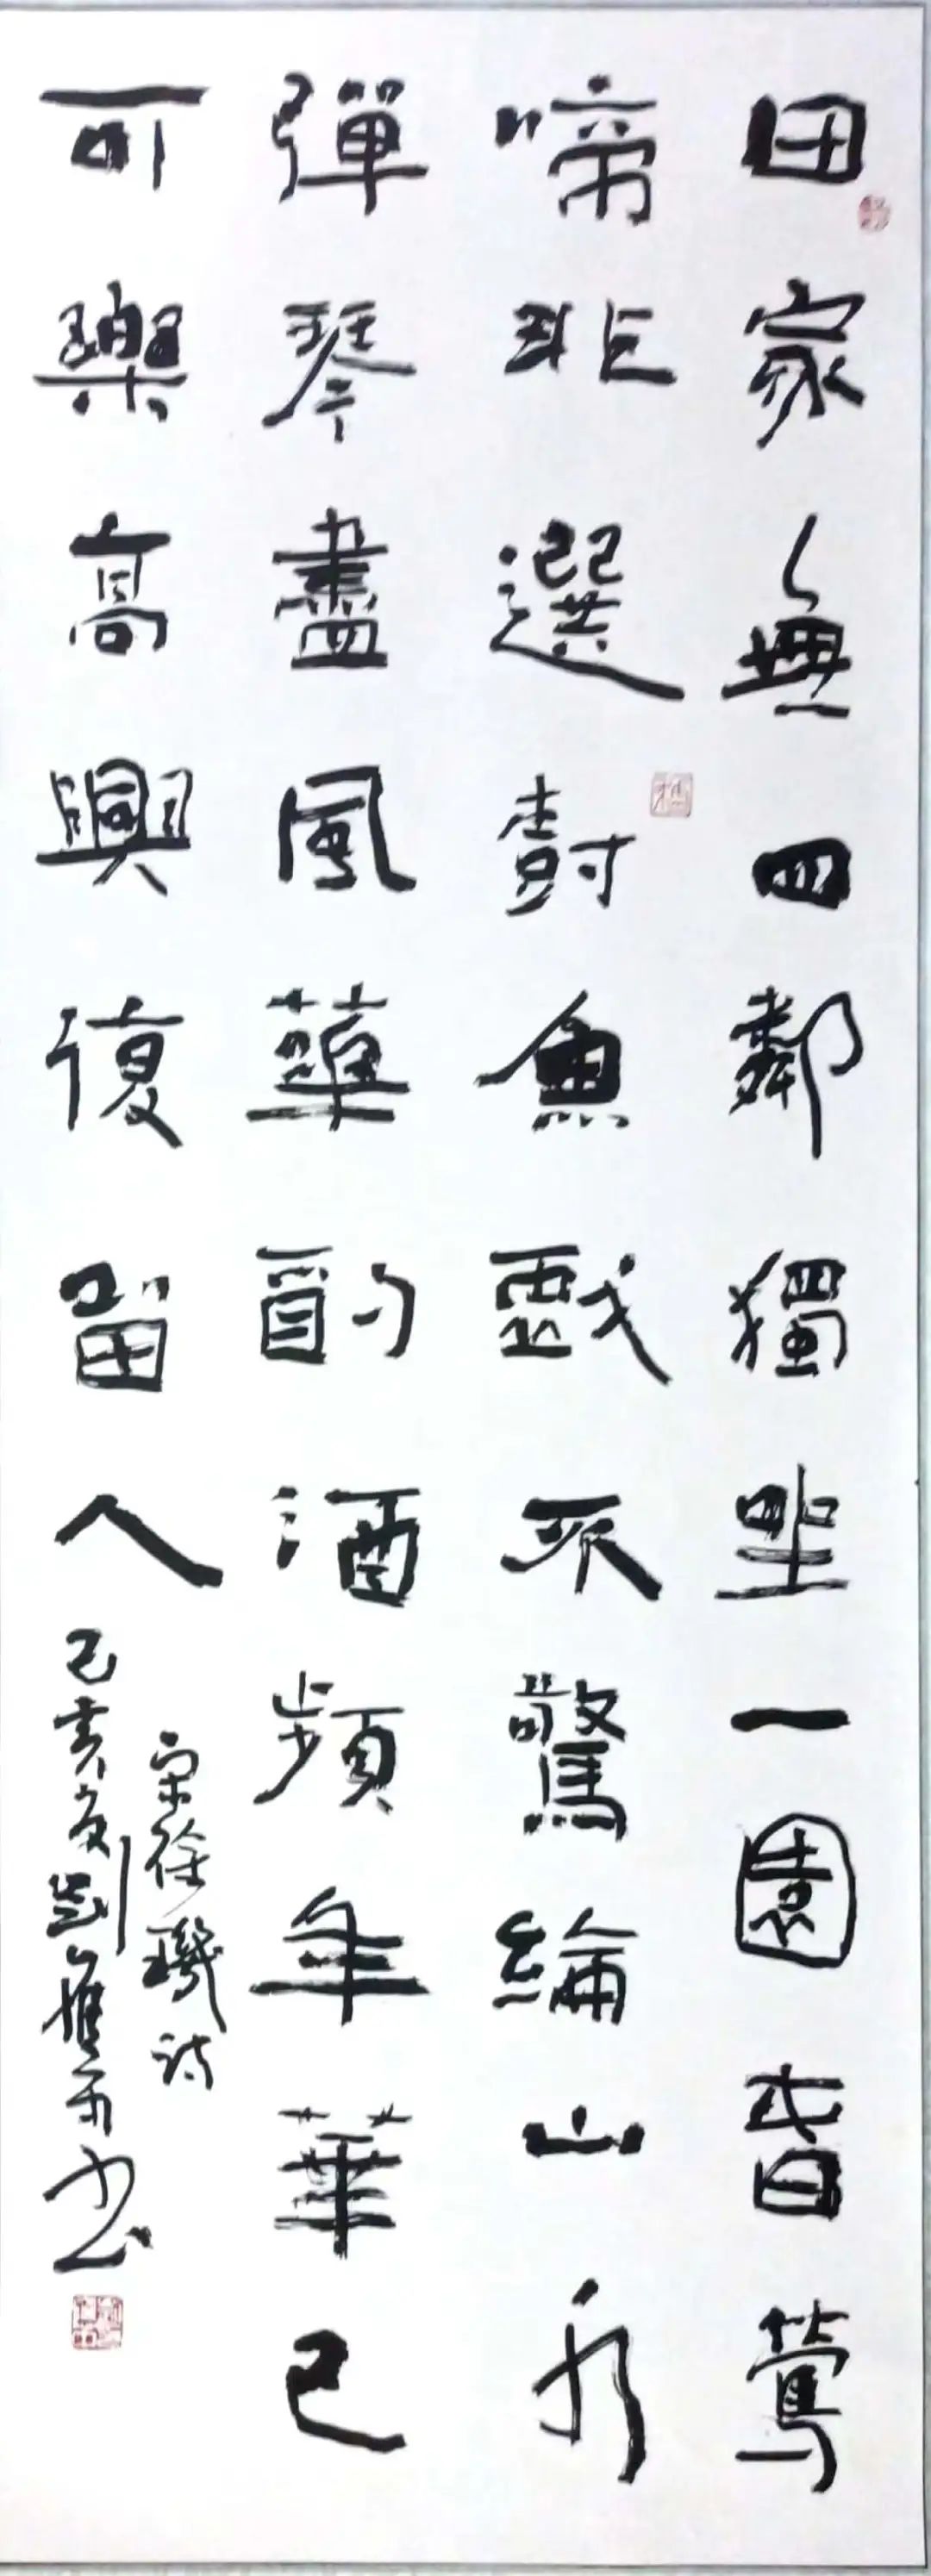 田家無四鄰獨坐一園春鶯
啼非選樹魚戲不驚綸山水
彈琴盡風華酌酒頻年華已
可樂高興復留人
宋徐璣詩
己亥夏劉書